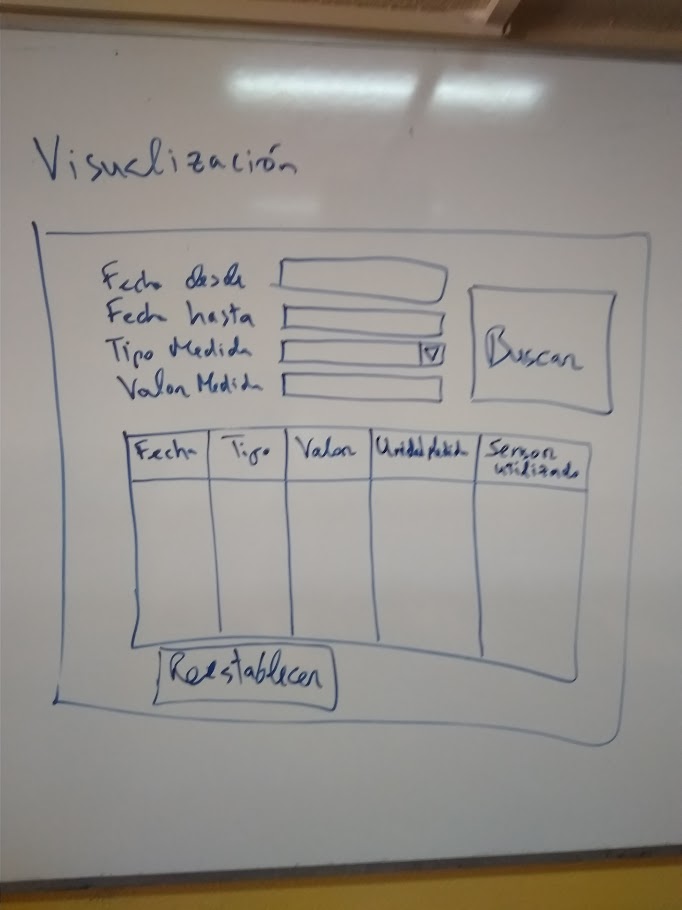 Visualización
Fecha desde
Fecha hasta
Tipo Medida
Buscar
Valor Medida
Fecha Tipo Valor Unidad Medida Sensor
utilizado
Reestablecer